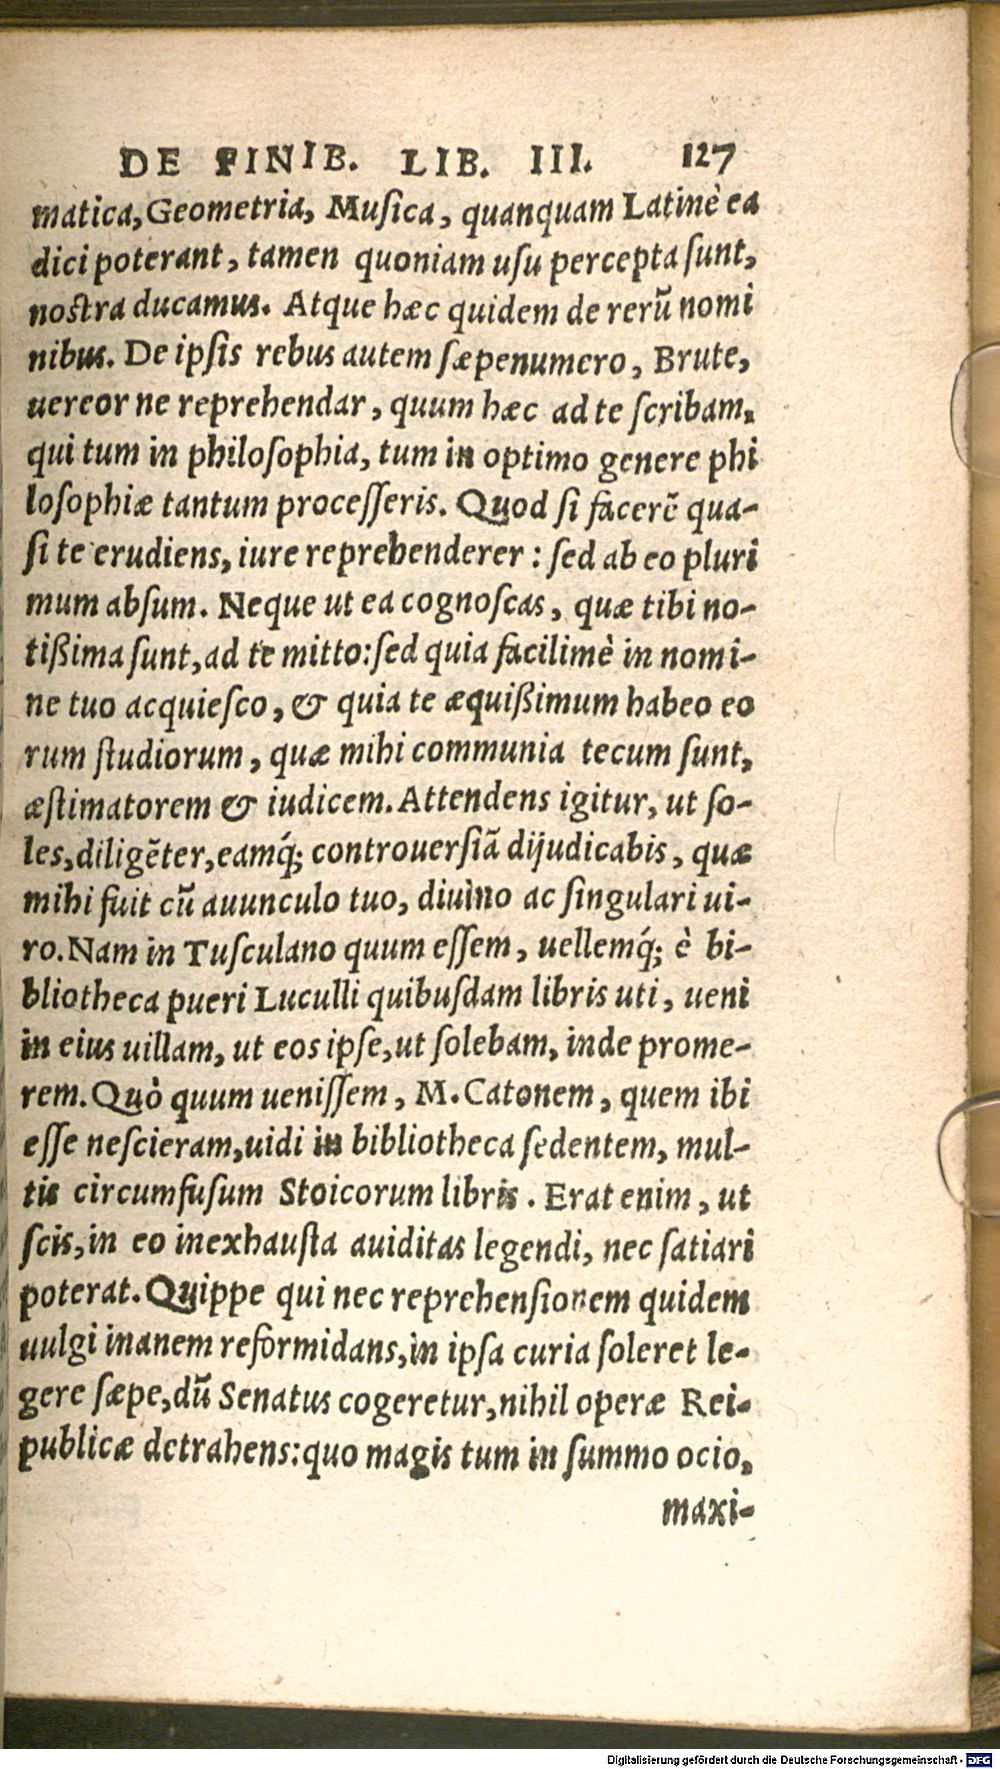 DE FINIB. LIB. III. 127
matica, Geometria, Musica, quanquam Latinè ea
dici poterant, tamen quoniam usu percepta sunt,
nostra ducamus. Atque hæc quidem de rerũ nomi
nibus. De ipsis rebus autem sæpenumero, Brute,
uereor ne reprehendar, quum hæc ad te scribam,
qui tum in philosophia, tum in optimo genere phi
losophiæ tantum processeris. Quod si facerẽ qua-
si te erudiens, iure reprehenderer: sed ab eo pluri
mum absum. Neque ut ea cognoscas, quæ tibi no-
tißima sunt, ad te mitto: sed quia facilimè in nomi-
ne tuo acquiesco, & quia te æquißimum habeo eo
rum studiorum, quæ mihi communia tecum sunt,
æstimatorem & iudicem. Attendens igitur, ut so-
les, diligẽter, eamq́; controuersiã dijudicabis, quæ
mihi fuit cũ auunculo tuo, diuino ac singulari ui-
ro. Nam in Tusculano quum essem, uellemq́; è bi-
bliotheca pueri Luculli quibusdam libris uti, ueni
in eius uillam, ut eos ipse, ut solebam, inde prome-
rem. Quò quum uenissem, M. Catonem, quem ibi
esse nescieram, uidi in bibliotheca sedentem, mul-
tis circumfusum Stoicorum libris. Erat enim, ut
scis, in eo inexhausta auiditas legendi, nec satiari
poterat. Quippe qui nec reprehensionem quidem
uulgi inanem reformidans, in ipsa curia soleret le-
gere sæpe, dũ Senatus cogeretur, nihil operæ Rei-
publicæ detrahens: quo magis tum in summo ocio,
maxi-
Digitalisierung gefördert durch die Deutsche Forschungsgemeinschaft - DFG